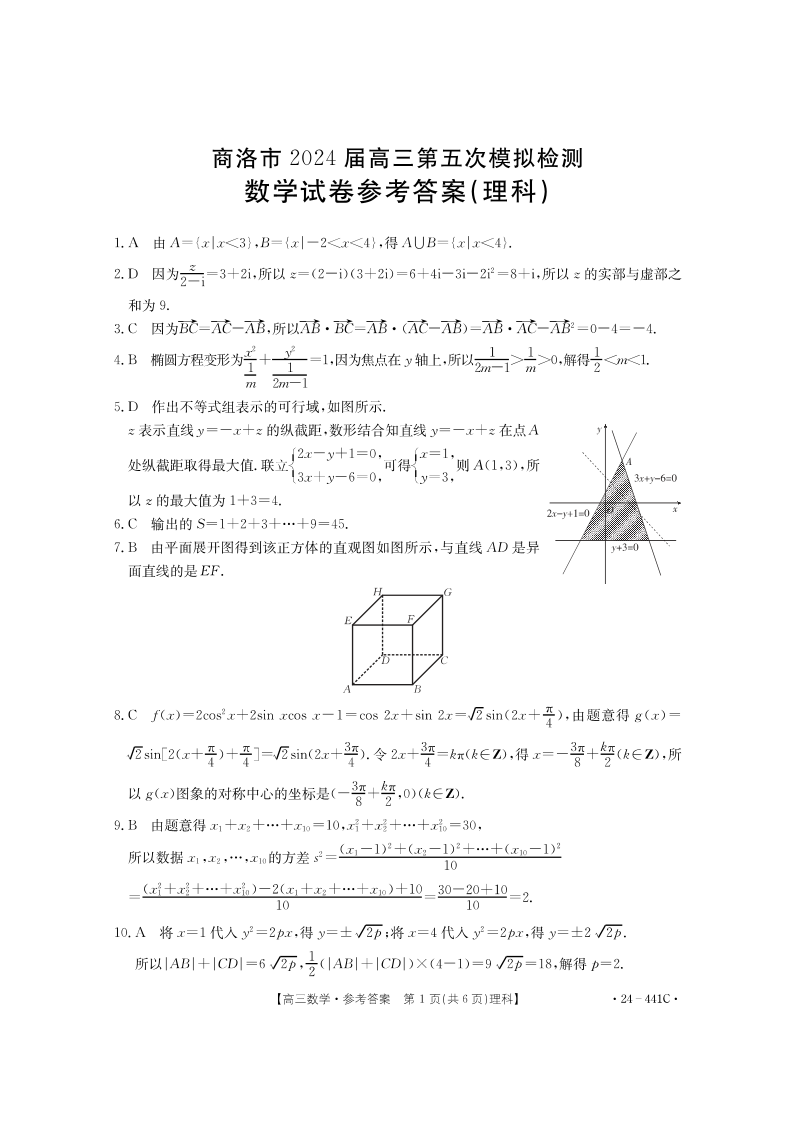 商洛市 2024 届高三第五次模拟检测
数学试卷参考答案(理科)
1. A 由 A={x|x<3},B={x|-2<x<4},得 A∪B={x|x<4}.
2. D 因为$\frac{z}{2-i}$=3+2i,所以 z=(2-i)(3+2i)=6+4i-3i-2i²=8+i,所以 z 的实部与虚部之
和为 9.
3. C 因为$\overrightarrow{BC}=\overrightarrow{AC}-\overrightarrow{AB}$,所以$\overrightarrow{AB}·\overrightarrow{BC}=\overrightarrow{AB}·(\overrightarrow{AC}-\overrightarrow{AB})=\overrightarrow{AB}·\overrightarrow{AC}-\overrightarrow{AB}^2$=0-4=-4.
4. B 椭圆方程变形为$\frac{x^2}{\frac{1}{m}}+\frac{y^2}{\frac{1}{2m-1}}=1$,因为焦点在 y 轴上,所以$\frac{1}{2m-1}>\frac{1}{m}>0$,解得$\frac{1}{2}$<m<1.
5. D 作出不等式组表示的可行域,如图所示.
z 表示直线 y=-x+z 的纵截距,数形结合知直线 y=-x+z 在点 A
处纵截距取得最大值. 联立$\begin{cases}2x-y+1=0,\\3x+y-6=0,\end{cases}$可得$\begin{cases}x=1,\\y=3,\end{cases}$则 A(1,3),所
以 z 的最大值为 1+3=4.
y
A
3x+y-6=0
2x-y+1=0
O
x
y+3=0
6. C 输出的 S=1+2+3+…+9=45.
7. B 由平面展开图得到该正方体的直观图如图所示,与直线 AD 是异
面直线的是 EF.
H G
E F
D C
A B
8. C f(x)=2cos²x+2sin xcos x-1=cos 2x+sin 2x=$\sqrt{2}$sin(2x+$\frac{π}{4}$),由题意得 g(x)=
$\sqrt{2}$sin[2(x+$\frac{π}{4}$)+$\frac{π}{4}$]=$\sqrt{2}$sin(2x+$\frac{3π}{4}$). 令 2x+$\frac{3π}{4}$=kπ(k∈Z),得 x=-$\frac{3π}{8}$+$\frac{kπ}{2}$(k∈Z),所
以 g(x)图象的对称中心的坐标是(-$\frac{3π}{8}$+$\frac{kπ}{2}$,0)(k∈Z).
9. B 由题意得 $x_1+x_2+…+x_{10}=10$,$x_1^2+x_2^2+…+x_{10}^2=30$,
所以数据 $x_1,x_2,…,x_{10}$的方差 $s^2=\frac{(x_1-1)^2+(x_2-1)^2+…+(x_{10}-1)^2}{10}$
$=\frac{(x_1^2+x_2^2+…+x_{10}^2)-2(x_1+x_2+…+x_{10})+10}{10}=\frac{30-20+10}{10}=2$.
10. A 将 x=1 代入 y²=2px,得 y=±$\sqrt{2p}$;将 x=4 代入 y²=2px,得 y=±2$\sqrt{2p}$.
所以|AB|+|CD|=6$\sqrt{2p}$,$\frac{1}{2}$(|AB|+|CD|)×(4-1)=9$\sqrt{2p}$=18,解得 p=2.
【高三数学·参考答案 第 1 页(共 6 页)理科】 ·24-441C·